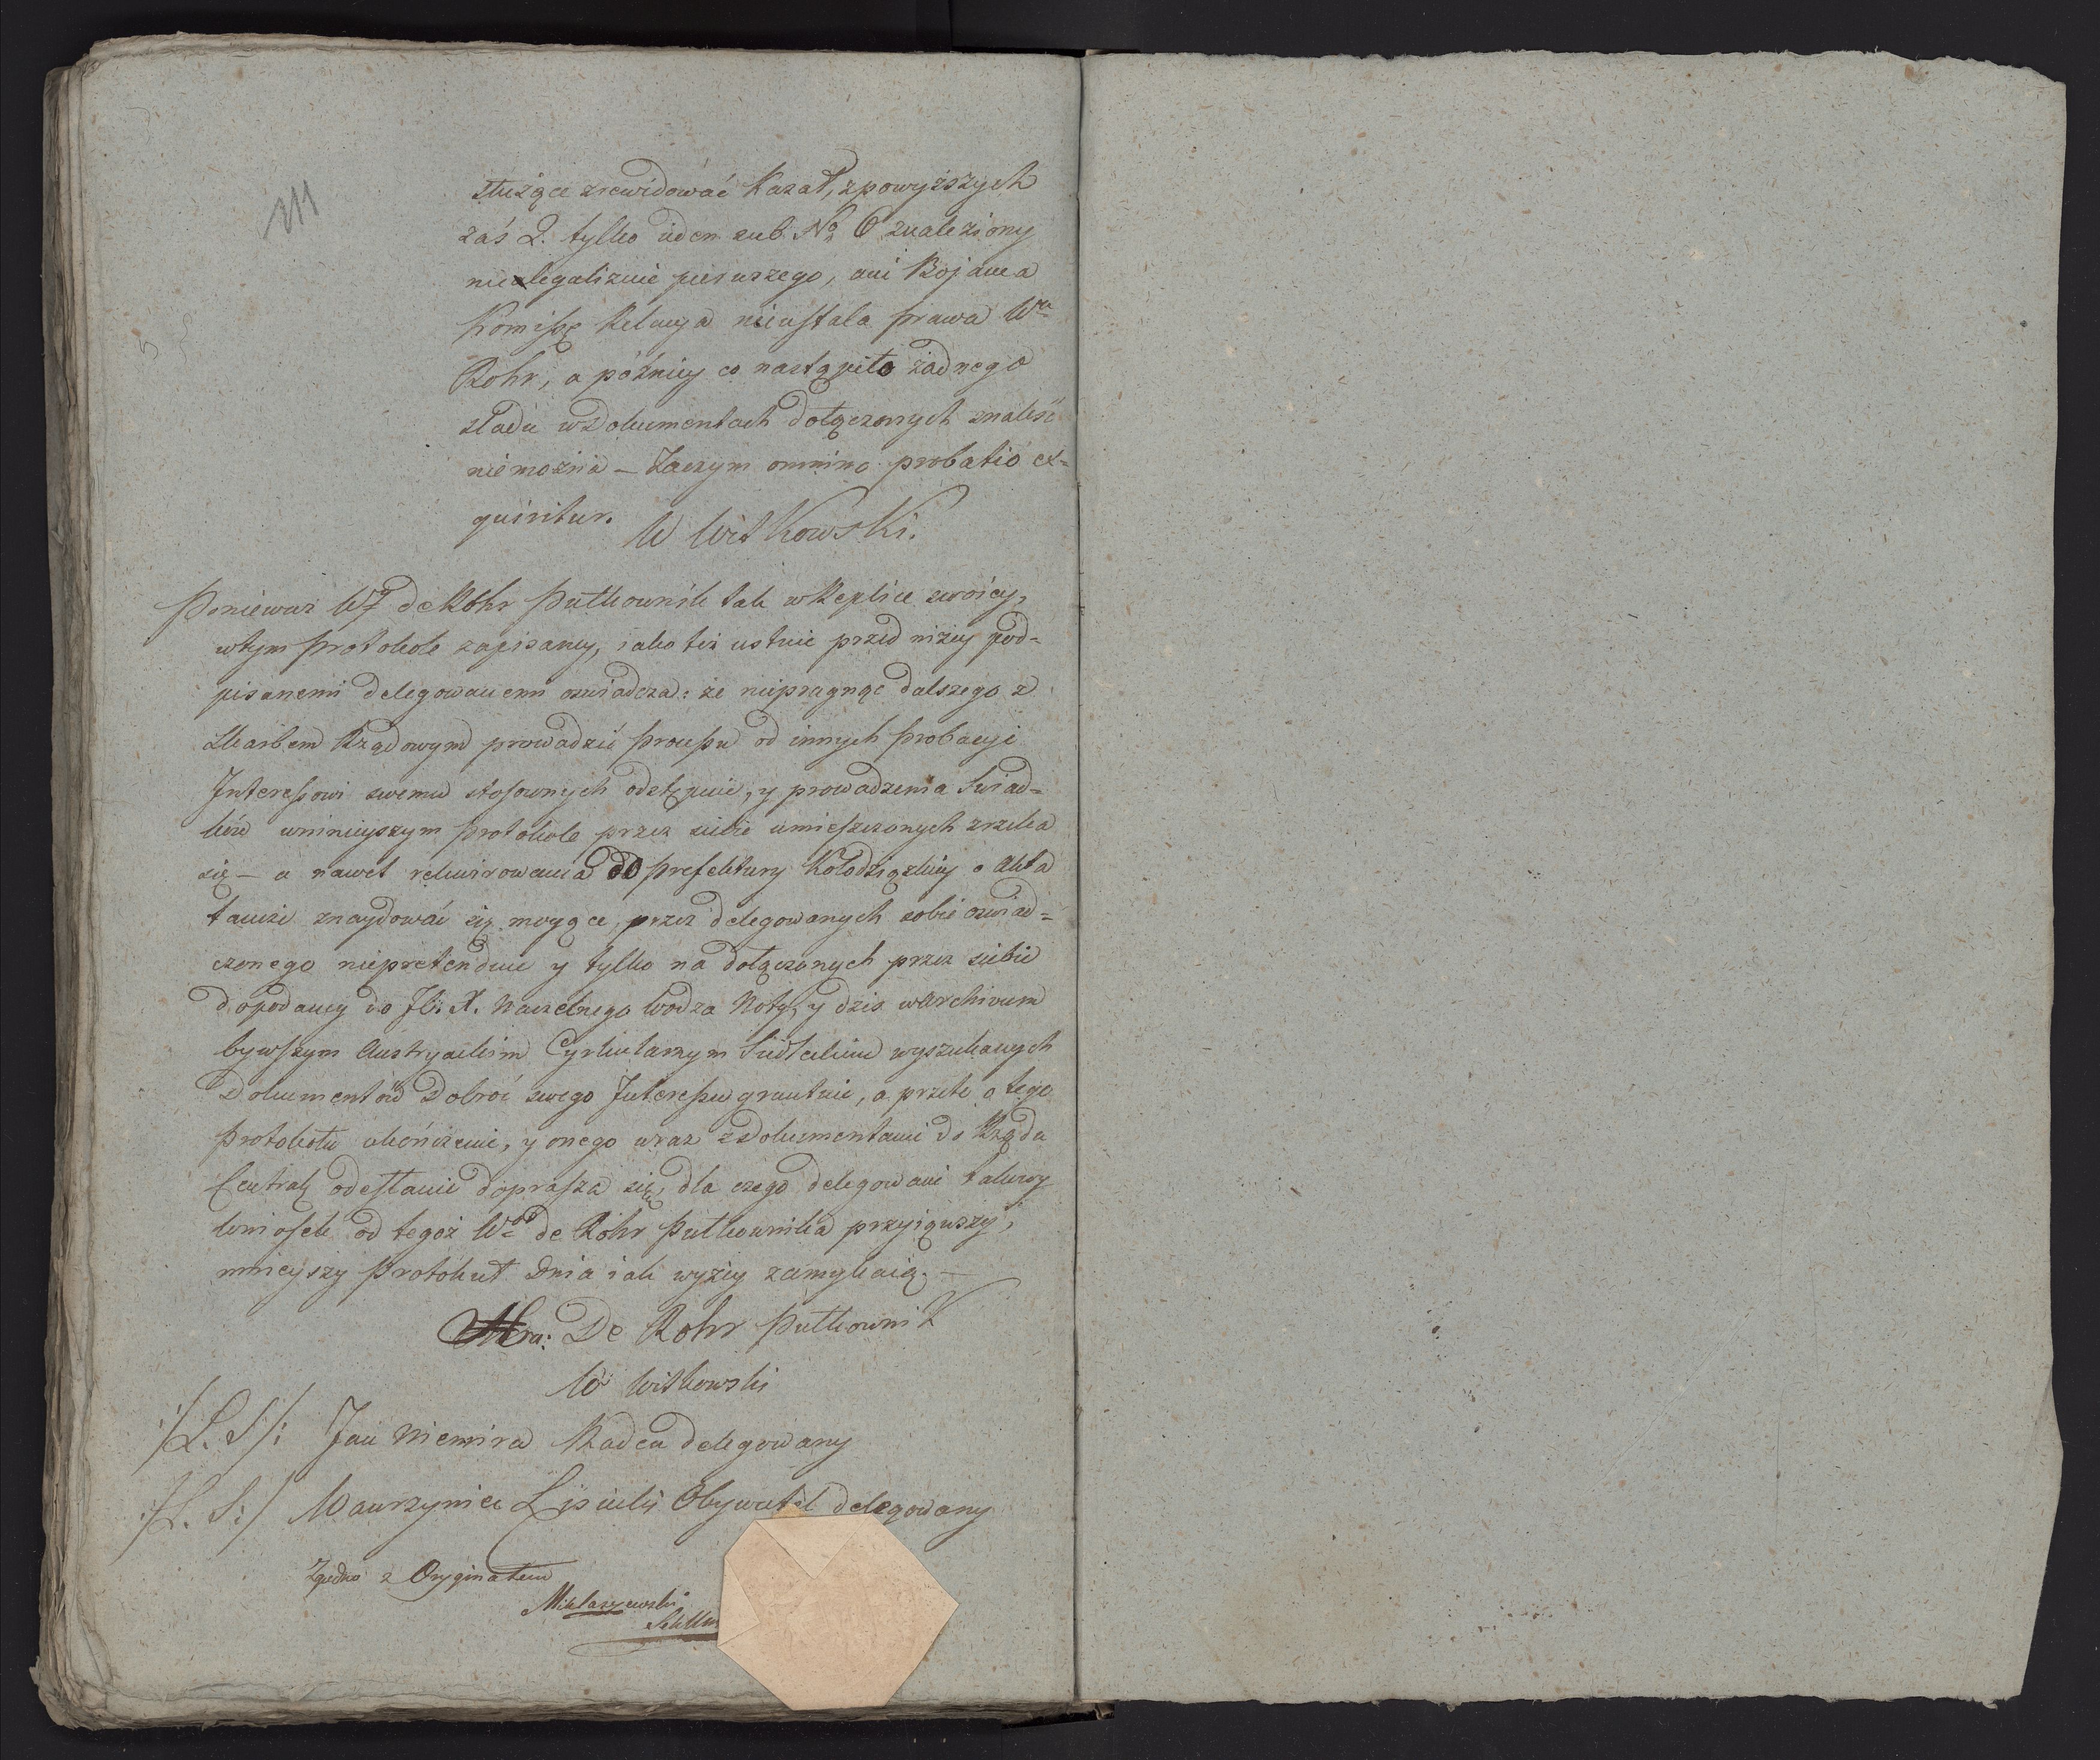 służące zrewidować Kazał, z powyższych
zaś 2. tylko iden sub No 6 znaleziony
nielegalizuie pierwszego, ani Bojanea
Komissę Relacya nieustala prawa Wo
Rohr, a późniey co nastąpiło żadnego
sladu w Dokumentach dołączonych znaleść
niemożna — Zaczym omnino probatio ex=
quiritur.
W Witkowski.
Ponieważ W de Rohr Pułkownik tak w Replice swoiey,
wtym protokole zapisaney, iako też ustnie przed niżey pod=
pisanemi delegowanemi oswiadcza: że niepragnąc dalszego z
Skarbem Rządowym prowadzić Processu od innych probacyi
Interessowi swemu stosownych odstępuie, y prowadzenia Swiad=
ków wninieyszym protokole przez siebie umieszczonych zrzeka
się — a nawet rekwirowania do prefektury Kołodziązkiey o Akta
tamże znaydować się mogące, przez delegowanych sobie oswiad=
czonego niepretenduie y tylko na dołączonych przez siebie
do podaney do JO. X. Naczelnego Wodza Noty, y dziś w Archivum
bywszym Austryackim Cyrkularnym Siedleckim wyszukanych
Dokumentów Dobroć swego Interessu gruntuie, a przeto o tego
Protokołu ukończenie, y onego wraz z Dokumentami do Rządu
Central odesłanie doprasza się, dla czego delegowani takowy
wniosek od tegoż Wo de Rohr Pułkownika przyiąwszy,
ninieyszy Protokuł dnia iak wyżey zamykaią. —
De Rohr Pułkownik
W Witkowski
/L. S/: Jan Niemira Radca delegowany
/L. S:/ Wawrzyniec Lipiecki Obywatel delegowany
Zgodno z Oryginałem
Miklaszewski